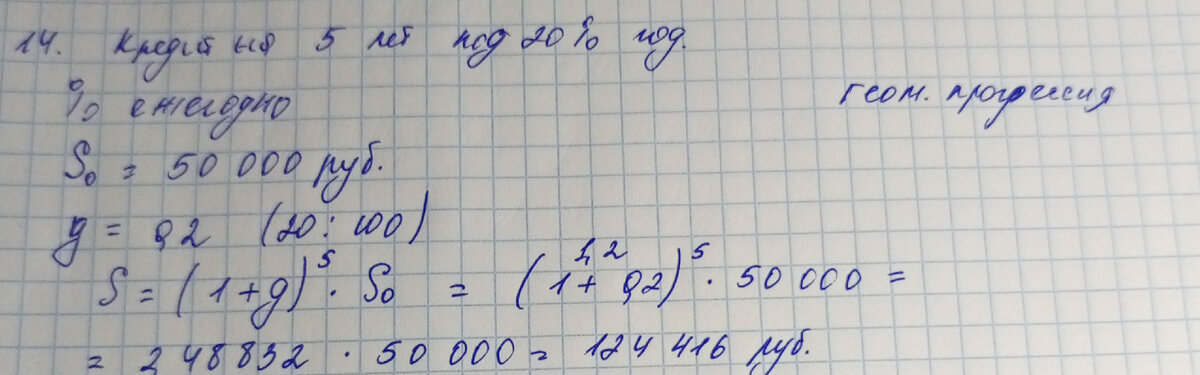 14. Кредит на 5 лет под 20% год.
% ежегодно
Геом. прогрессия
S₀ = 50 000 руб.
g = 0,2 (20 : 100)
1,2
S = (1+g)⁵ · S₀ = (1 + 0,2)⁵ · 50 000 =
= 2,48832 · 50 000 = 124 416 руб.